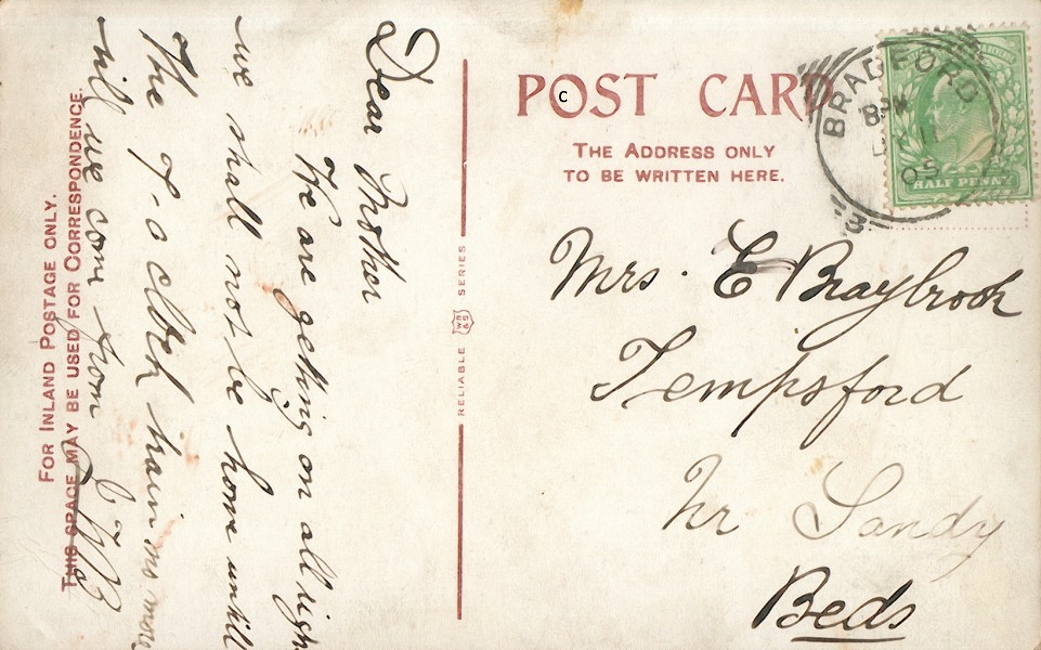 POST CARD
c
THE ADDRESS ONLY
TO BE WRITTEN HERE.
BRADFORD
8
11
05
HALF PENNY
Mrs. E Braybrook
Tempsford
Nr Sandy
Beds
RELIABLE SERIES
WR
&S
FOR INLAND POSTAGE ONLY.
THIS SPACE MAY BE USED FOR CORRESPONDENCE.
Dear Mother
We are getting on all righ
we shall not be home untill
the 7-0 clock train no more
till we com from